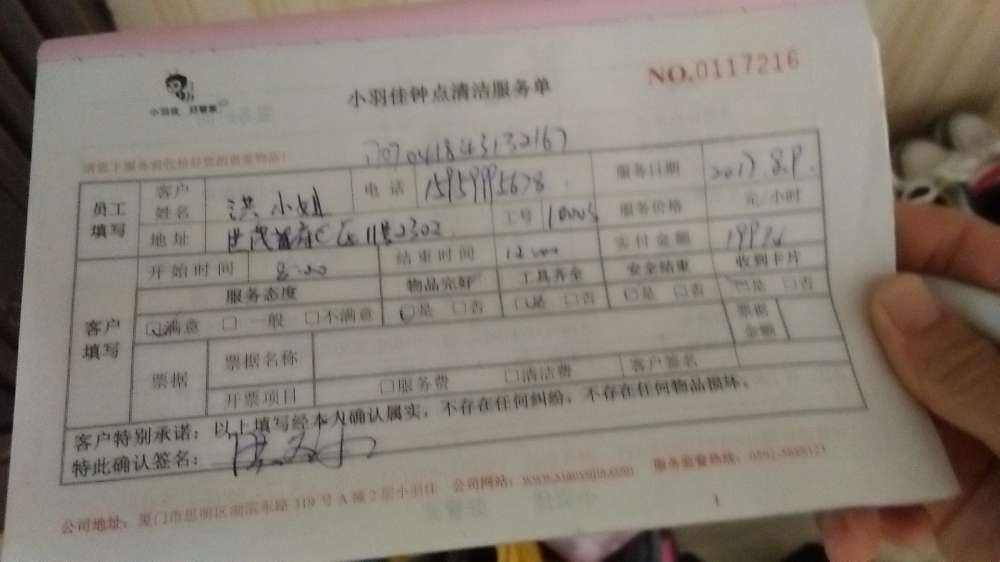 小羽佳 好管家
小羽佳钟点清洁服务单
NO.0117216
员工填写
客户姓名 洪小姐 电话 15959995678 服务日期 2017.8.9.
地址 工号 服务价格 元/小时
客户填写
开始时间 8:00 结束时间 12:00 实付金额 收到卡片
服务态度 物品完好 工具齐全 安全结束
☑满意 □一般 □不满意 ☑是 □否 ☑是 □否 ☑是 □否 ☑是 □否
票据 票据名称 票据金额
开票项目 □服务费 □清洁费 客户签名
客户特别承诺：以上填写经本人确认属实，不存在任何纠纷，不存在任何物品损坏。
特此确认签名：
公司地址：厦门市思明区湖滨东路319号A幢2层小羽佳 公司网站： 服务监督热线：
1